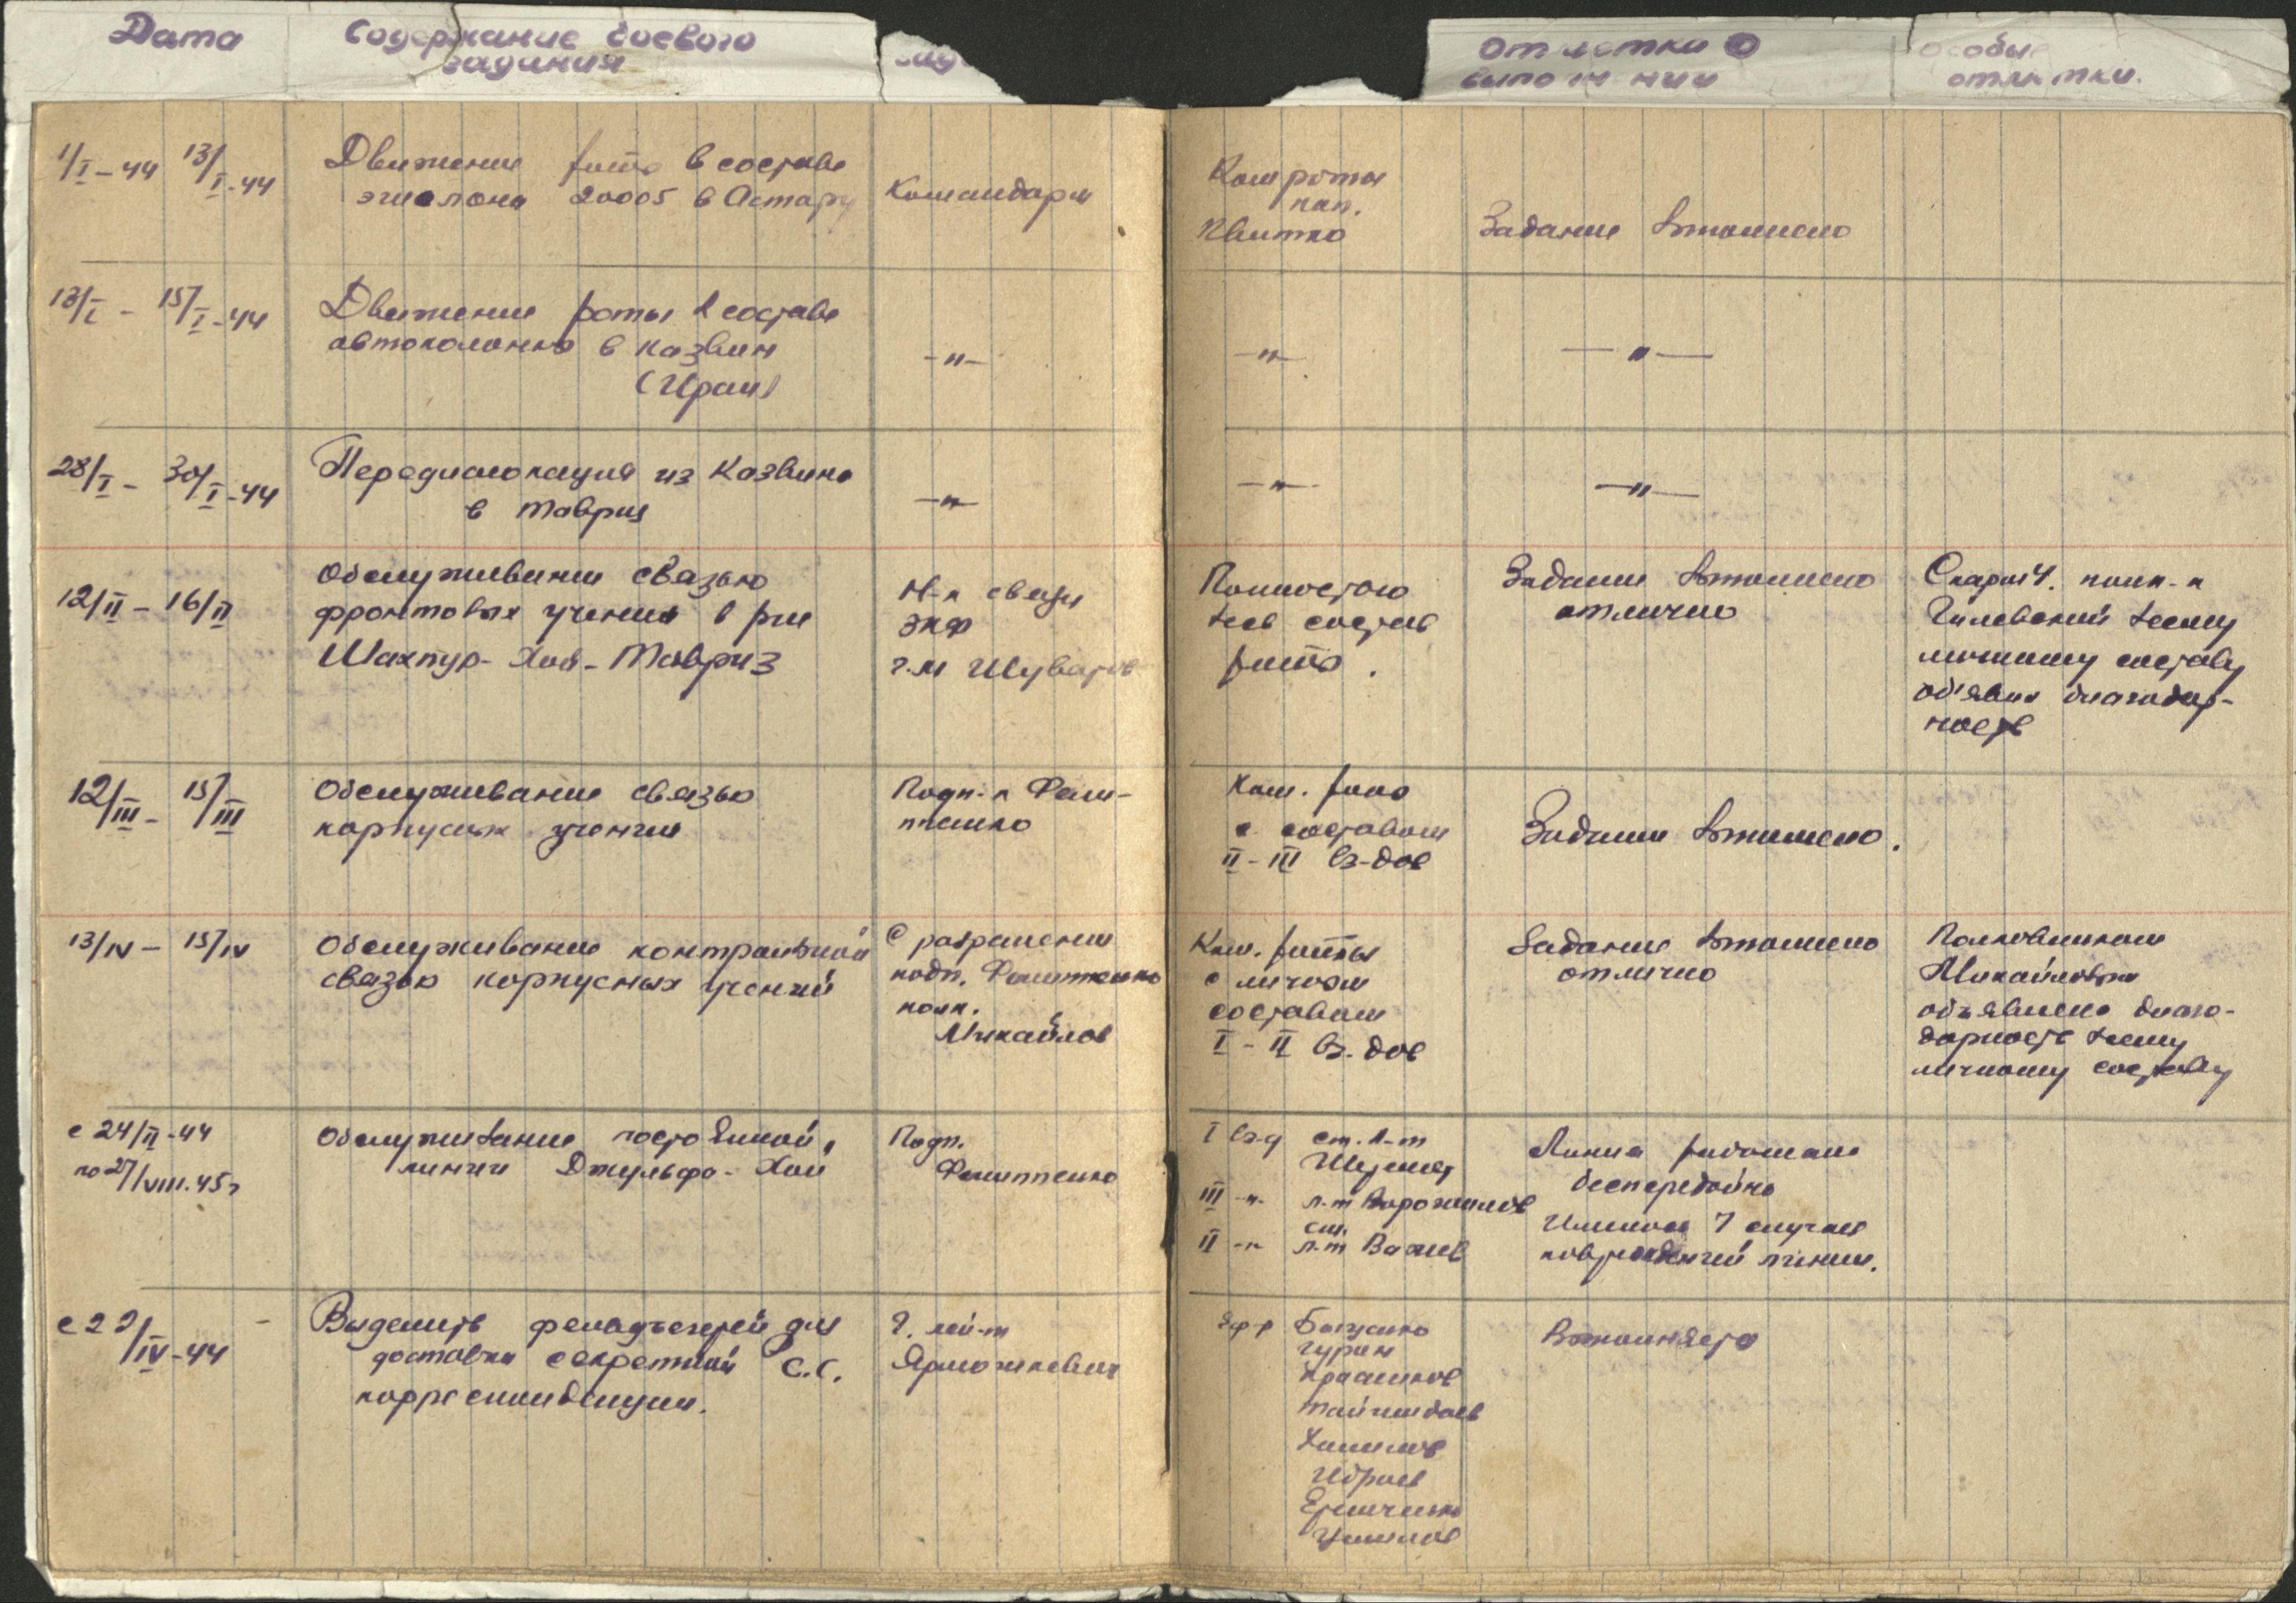 Дата
Содержание боевого
задания
Отметки о
выполнении
Особые
отметки.
1/I-44 13/I-44
Движение роты в составе
эшелона 20005 в Астару
Командарм
Ком роты
кап.
Квитко
Задание выполнено
13/I - 15/I-44
Движение роты в составе
автоколонны в Казвин
(Иран)
-"-
-"-
-"-
28/I - 30/I-44
Передислокация из Казвина
в Тавриз
-"-
-"-
-"-
12/II - 16/II
Обслуживание связью
фронтовых учений в р-не
Шахпур-Хой-Тавриз
Н-к связи
ЗКФ
г.м Шувалов
Полностью
весь состав
роты.
Задание выполнено
отлично
полк-к
Гилевский всему
личному составу
об'явил благодар-
ность
12/III - 15/III
Обслуживание связью
корпусных учений
Подп-к Фили-
ппенко
Ком. роты
с составом
II-III вз-дов
Задание выполнено.
13/IV - 15/IV
Обслуживание контрольной
связью корпусных учений
С разрешения
подп. Филиппенко
полк.
Михайлов
Ком. роты
с личным
составом
I-II вз-дов
Задание выполнено
отлично
Полковником
Михайловым
объявлена благо-
дарность всему
личному составу
с 24/II-44
по 27/VIII.45г
Обслуживание постоянной
линии Джульфа-Хой
Подп.
Филиппенко
I вз-д ст. л-т
III -"- л-т Ворожцов
ст.
II -"- л-т
Линия работала
бесперебойно
Имелось 7 случаев
повреждений линии.
с 22/IV-44 -
Выделить фельдъегерей для
доставки секретной С.С.
корреспонденции.
Г. лей-т
Ярмошкевич
Ефр Боженко
Гурин
Храмцов
Тайшибаев
Халилов
Ибраев
Еремченко
Выполняется